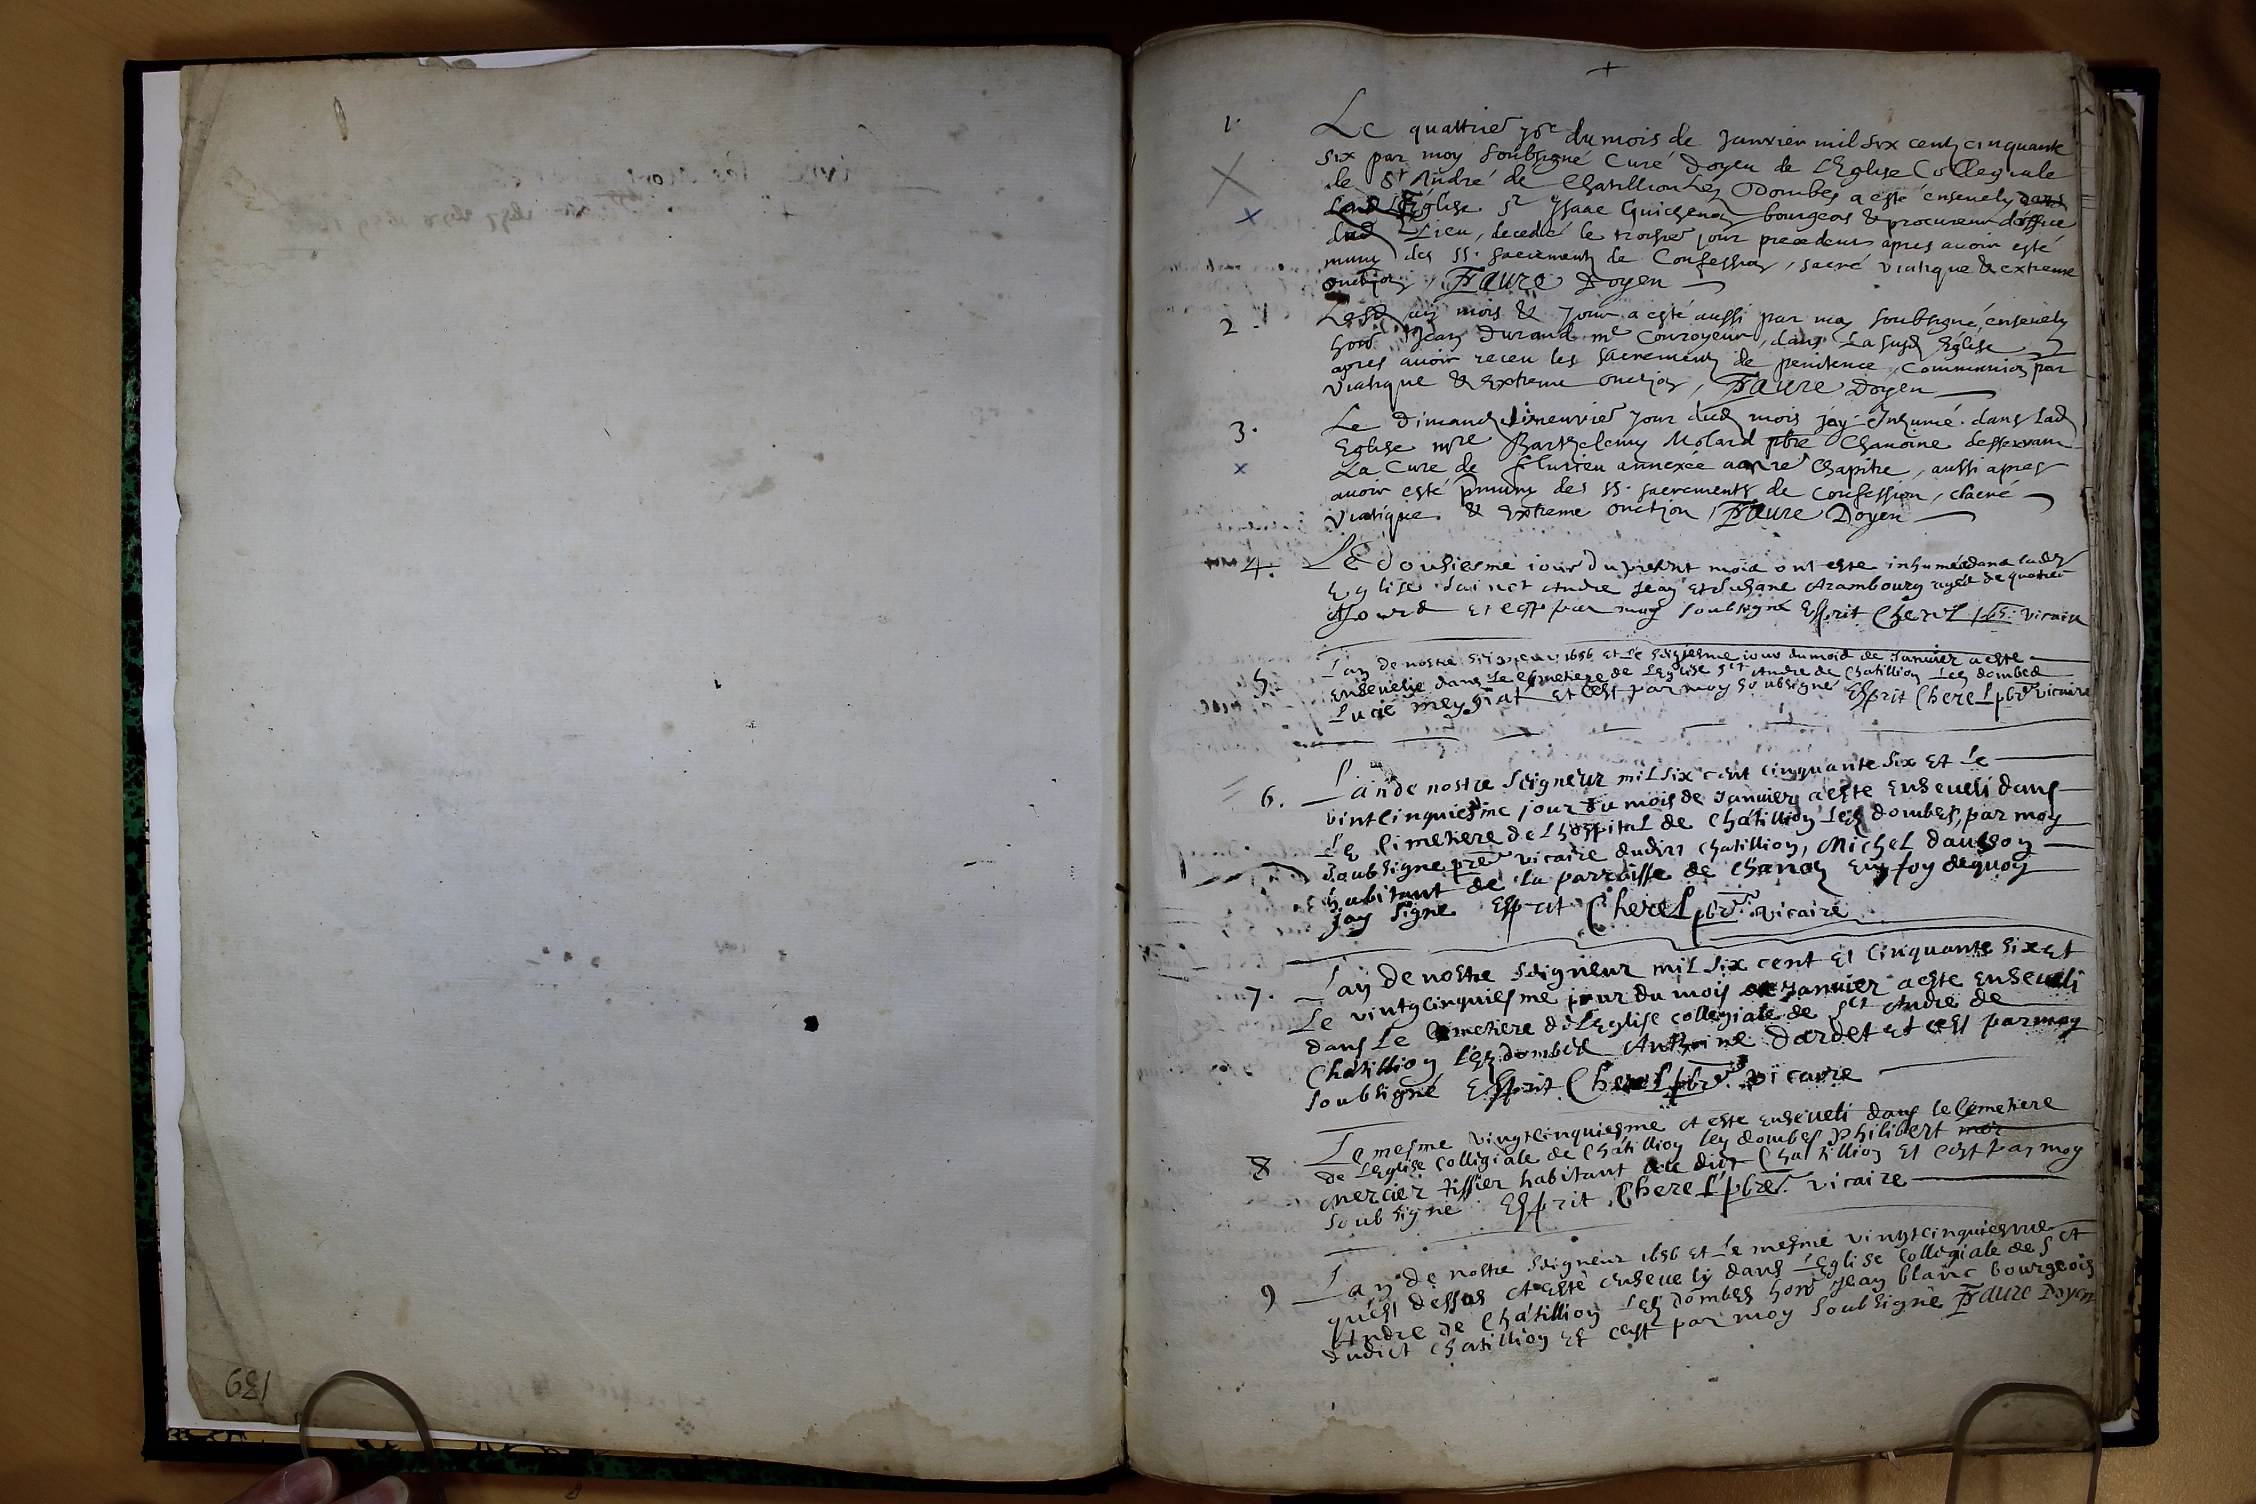 139
+
1. Le quattrie jor du mois de Janvier mil six centz cinquante
six par moy soubsigné Curé Doyen de l'Eglise Collegiale
de St André de Chatillion Lez Dombes a esté ensevely dans
Lad. Eglise Sr Ysaac Guichenon bourgeois & procureur d'office
dud Lieu, decedé le troisie jour precedent apres avoir esté
muny des SS. sacrementz de Confession, sacré viatique & extreme
onction, Faure Doyen
2. Lesd an mois & Jour a esté aussi par moy soubsigné, ensevely
hon Jean Durand me Couroyeur, dans La susd Eglise
apres avoir receu les sacrementz de penitence, Communion par
viatique & extreme onction, Faure Doyen
3. Le Dimanche neuvie jour dud mois jay Inhumé dans Lad
Eglise mre Barthelemy Molard pbre Chanoine desservant
La Cure de Flurieu annexée a nre Chapitre, aussi apres
avoir esté muny des SS. sacrements de Confession, sacré
viatique & extreme onction, Faure Doyen
4. Le dousiesme iour du present mois ont este inhumés dans ladt
Eglise Sainct Andre Jean et Susane Arambourg agés de quatre
Jours et cest par moy soubsigné Esprit Cherel pbr. vicaire
5. Lan de nostre Seigneur 1656 et Le iour du mois de Janvier a este
ensevelie dans Le Cemetiere de LEglise Sct Andre de Chatillion Les dombes
Lucie meygiat et cest par moy soubsigné Esprit Cherel pbre vicaire
6. Lan de nostre Seigneur mil six cent cinquante six et Le
vintcinquiesme jour du mois de Janvier a este enseveli dans
Le Cimetiere de Lhospital de Chátillion Les dombes, par moy
soubsigne pre vicaire dudict Chatillion, Michel
habitant de la parroisse de Chanoz en foy dequoy
Jay Signe Esprit Cherel pbre. vicaire
7. Lan De nostre Seigneur mil six cent et Cinquante six et
Le vintgcinquiesme jour du mois de Janvier a este enseveli
dans Le Cemetiere de LEglise collegiale de Sct Andre de
Chátillion Les dombes Anthoine Dardet et cest par moy
soubsigné Esprit Cherel pbre vicaire
8 Le mesme vingtcinquiesme a este enseveli dans le Cemetiere
de LEglise Collegiale de Chátillion les dombes philibert mer
Mercier tissier habitant au dict Chattillion et cest par moy
soubsigne Esprit Cherel pbre. vicaire
9 Lan de nostre Seigneur 1656 et Le mesme vingtcinquiesme
quest dessus a esté ensevely dans LEglise Collegiale de Sct
Andre de Chátillion Les dombes hon Jean blanc bourgeois
dudict Chatillion et cest par moy soubsigné Faure Doyen